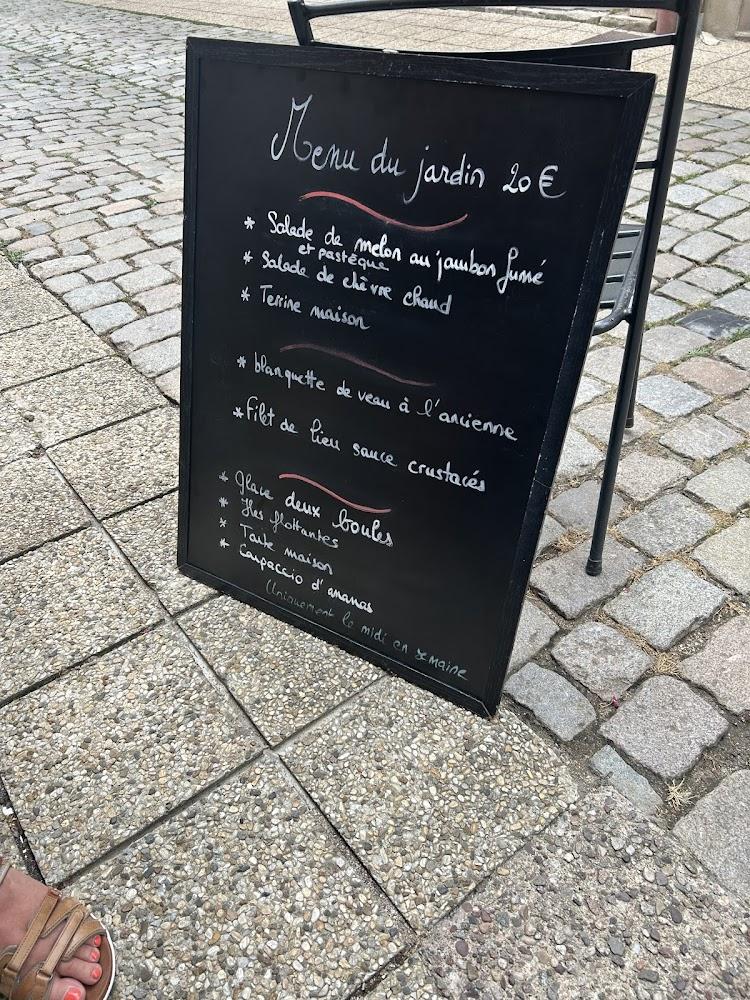 Menu du jardin 20 €
* Salade de melon au jambon fumé
et pastèque
* Salade de chèvre chaud
* Terrine maison
* blanquette de veau à l'ancienne
* Filet de lieu sauce crustacés
* Glace deux boules
* Iles flottantes
* Tarte maison
* Carpaccio d'ananas
Uniquement le midi en semaine